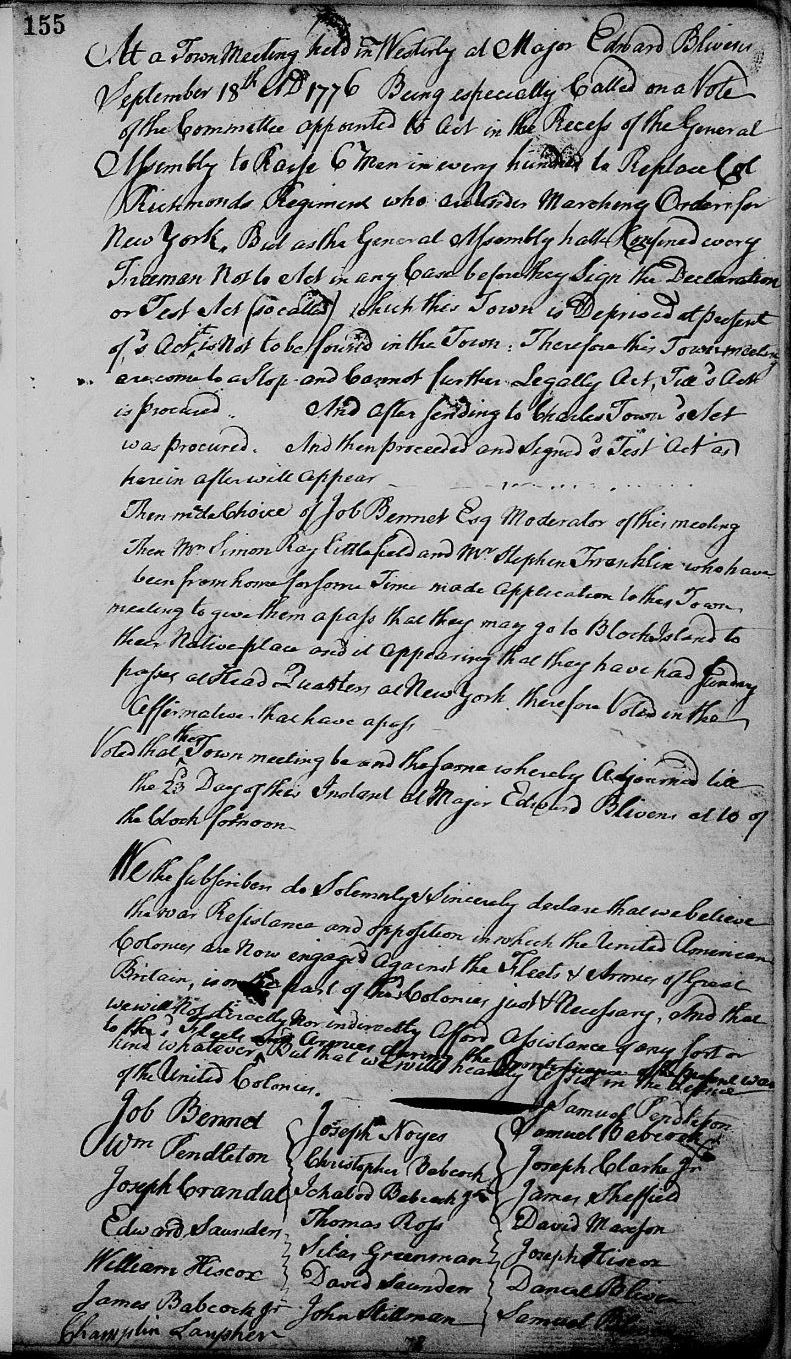 155
At a Town Meeting held in Westerly at Major Edward Blivens
September 18th AD 1776 Being especially Called on a Vote
of the Committee appointed to Act in the Recess of the General
Assembly to Raise 6 Men in every hundred to Replace Col
Richmonds Regiment who are under Marching Orders for
New York, But as the General Assembly hath Confined every
Freeman Not to Act in any Case before they Sign the Declaration
or Test Act (so called) which this Town is Deprived at present
of, sd Act is Not to be found in the Town: Therefore this Town meeting
are come to a Stop and Cannot further Legally Act, Till sd Act
is procured. And after sending to Charles Town sd Act
was procured. And then proceeded and Signed sd Test Act as
herein after will Appear
Then made Choice of Job Bennet Esq Moderator of this meeting
Then Mr Simon Ray Littlefield and Mr Stephen Franklin who have
been from home for some Time made application to this Town
meeting to give them a pass that they may go to Block Island to
their Native place and it appearing that they have had sundry
passes at Head Quatters at New York therefore Voted in the
Affirmative that have a pass
Voted that this Town meeting be and the same is hereby Adjourned till
the 23d Day of this Instant at Major Edward Blivens at 10 of
the Clock fornoon
We the subscribers do Solemnly & Sincerely declare that we believe
the war Resistance and opposition in which the United American
Colonies are Now engaged Against the Fleets & Armies of Great
Britain, is on the part of the sd Colonies just & Necessary, And that
we will Not directly Nor indirectly Afford Assistance of any sort or
to the sd Fleets and Armies during the Continuance of the present war
kind whatever, But that we will heartily assist in the defence
of the United Colonies.
Samuel Pendleton
Job Bennet Joseph Noyes Samuel Babcock
Wm Pendleton Christopher Babcock Joseph Clarke Jr
Joseph Crandal Ichabod Babcock Jr James Sheffield
Edward Saunders Thomas Ross David Maxson
William Hiscox Silas Greenman Joseph Hiscox
James Babcock Jr David Saunders Daniel Bliven
Champlin Lanpher John Stillman Samuel